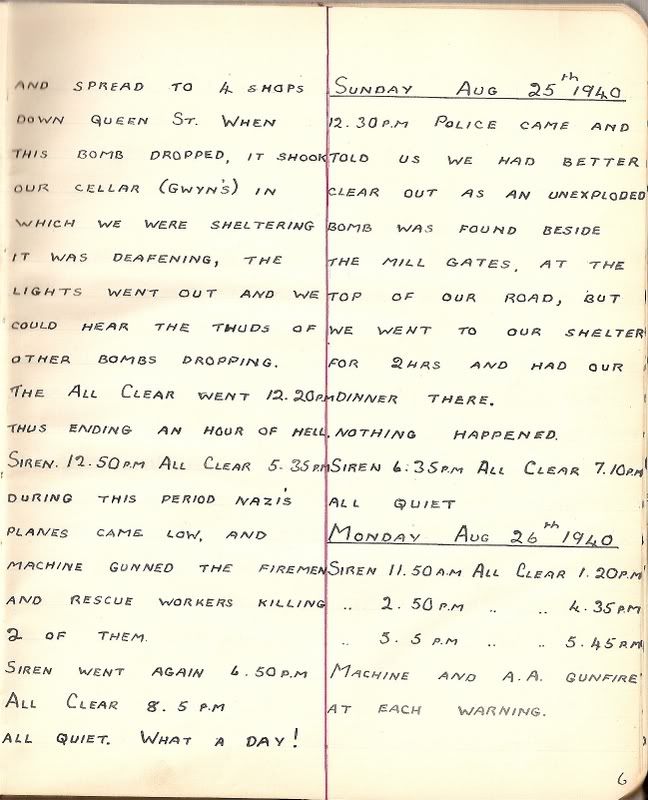 AND SPREAD TO 4 SHOPS
DOWN QUEEN ST. WHEN
THIS BOMB DROPPED, IT SHOOK
OUR CELLAR (GWYN'S) IN
WHICH WE WERE SHELTERING
IT WAS DEAFENING, THE
LIGHTS WENT OUT AND WE
COULD HEAR THE THUDS OF
OTHER BOMBS DROPPING.
THE ALL CLEAR WENT 12.20PM
THUS ENDING AN HOUR OF HELL.
SIREN. 12.50PM ALL CLEAR 5.35PM
DURING THIS PERIOD NAZI'S
PLANES CAME LOW, AND
MACHINE GUNNED THE FIREMEN
AND RESCUE WORKERS KILLING
2 OF THEM.
SIREN WENT AGAIN 6.50PM
ALL CLEAR 8.5 PM
ALL QUIET. WHAT A DAY!
SUNDAY AUG 25th 1940
12.30PM POLICE CAME AND
TOLD US WE HAD BETTER
CLEAR OUT AS AN UNEXPLODED
BOMB WAS FOUND BESIDE
THE MILL GATES, AT THE
TOP OF OUR ROAD, BUT
WE WENT TO OUR SHELTER
FOR 2HRS AND HAD OUR
DINNER THERE.
NOTHING HAPPENED.
SIREN 6:35PM ALL CLEAR 7.10PM
ALL QUIET
MONDAY AUG 26th 1940
SIREN 11.50AM ALL CLEAR 1.20PM
.. 2.50PM .. .. 4.35PM
.. 5.5PM .. .. 5.45PM
MACHINE AND A.A. GUNFIRE
AT EACH WARNING.
6